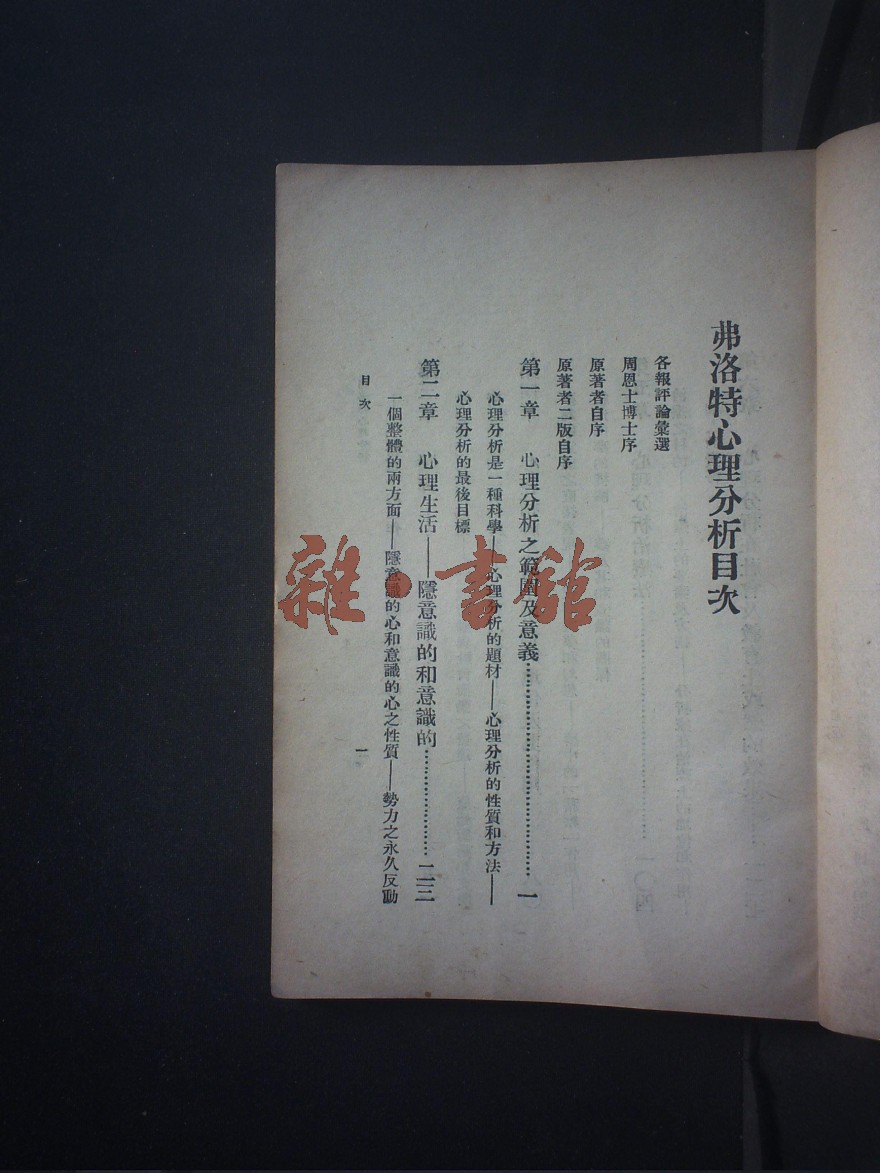 弗洛特心理分析目次
各報評論彙選
周恩士博士序
原著者自序
原著者二版自序
第一章 心理分析之範圍及意義…………………………一
心理分析是一種科學——心理分析的題材——心理分析的性質和方法——
心理分析的最後目標
第二章 心理生活——隱意識的和意識的……………二三
一個整體的兩方面——隱意識的心和意識的心之性質——勢力之永久反動
目次
一
雜·書館